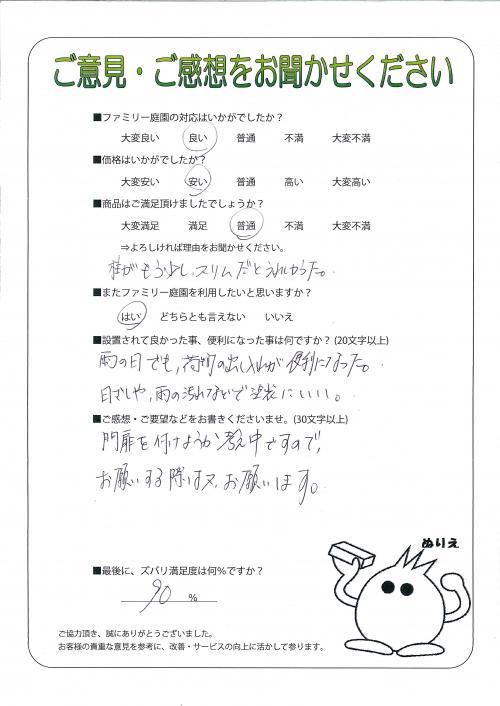 ご意見・ご感想をお聞かせください
■ファミリー庭園の対応はいかがでしたか？
大変良い 良い 普通 不満 大変不満
■価格はいかがでしたか？
大変安い 安い 普通 高い 大変高い
■商品はご満足頂けましたでしょうか？
大変満足 満足 普通 不満 大変不満
⇒よろしければ理由をお聞かせください。
柱がもう少し、スリムだとうれしかった。
■またファミリー庭園を利用したいと思いますか？
はい どちらとも言えない いいえ
■設置されて良かった事、便利になった事は何ですか？(20文字以上)
雨の日でも、荷物の出し入れが便利になった。
日ざしや、雨の汚れなどで
にいい。
■ご感想・ご要望などをお書きくださいませ。(30文字以上)
門扉を付けようか考え中ですので、
お願いする際は又、お願いします。
ぬりえ
■最後に、ズバリ満足度は何％ですか？
90 ％
ご協力頂き、誠にありがとうございました。
お客様の貴重な意見を参考に、改善・サービスの向上に活かして参ります。